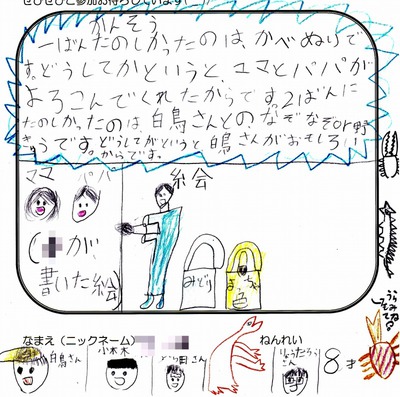 ぜひぜひご参加お待ちしています
かんそう
一ばんたのしかったのは、かべぬりで
す。どうしてかというと、ママとパパが
よろこんでくれたからです。2ばんに
たのしかったのは、白鳥さんとのなぞなぞor野
きゅうです。どうしてかというと、白鳥さんがおもしろい
からです。
ママ パパ
絵会
(が
書いた絵)
みどり
き
色
なまえ(ニックネーム)
ねんれい
白鳥さん
小木木
さん
さん
8才